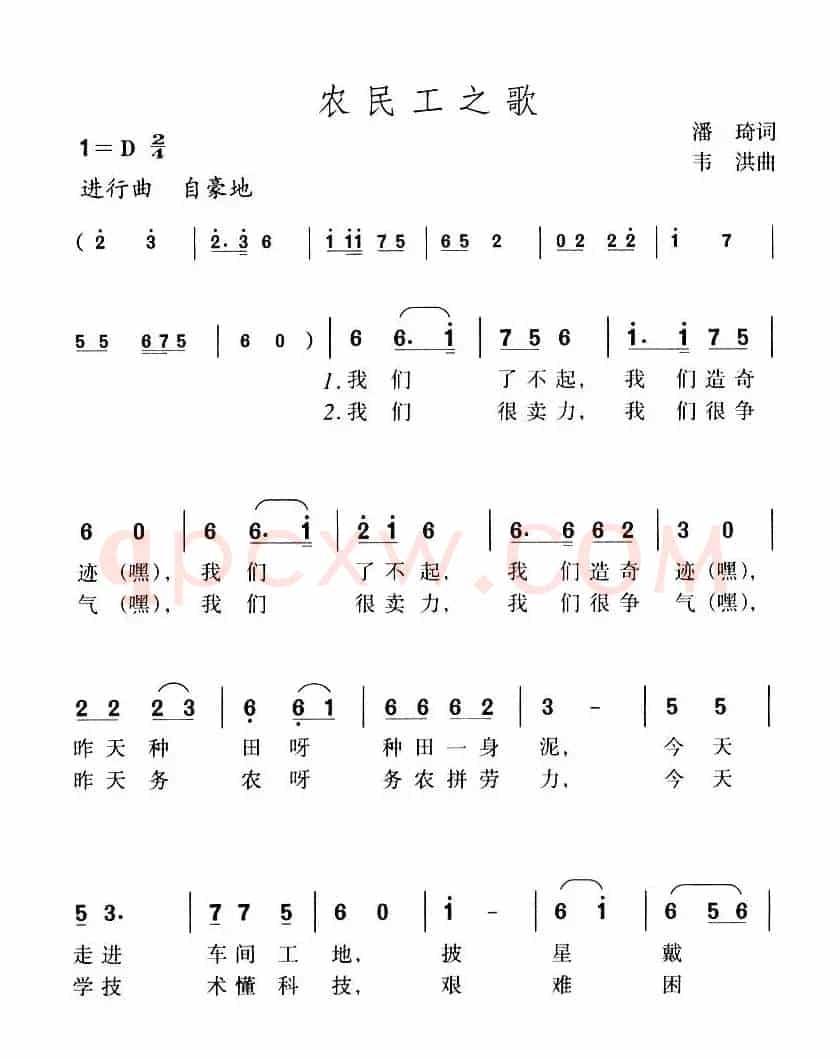 农民工之歌
1=D 2/4
潘 琦词
韦 洪曲
进行曲 自豪地
( 2 3 | 2. 3 6 | 1 11 7 5 | 6 5 2 | 0 2 2 2 | 1 7 |
5 5 6 7 5 | 6 0 ) | 6 6. 1 | 7 5 6 | 1. 1 7 5 |
1.我们 了不起, 我们造奇
2.我们 很卖力, 我们很争
6 0 | 6 6. 1 | 2 1 6 | 6. 6 6 2 | 3 0 |
迹(嘿), 我们 了不起, 我们造奇 迹(嘿),
气(嘿), 我们 很卖力, 我们很争 气(嘿),
qpcxw.com
2 2 2 3 | 6 6 1 | 6 6 6 2 | 3 - | 5 5 |
昨天种 田呀 种田一身 泥, 今天
昨天务 农呀 务农拼劳 力, 今天
5 3. | 7 7 5 | 6 0 | 1 - | 6 1 | 6 5 6 |
走进 车间工 地, 披 星 戴
学技 术懂科 技, 艰 难 困